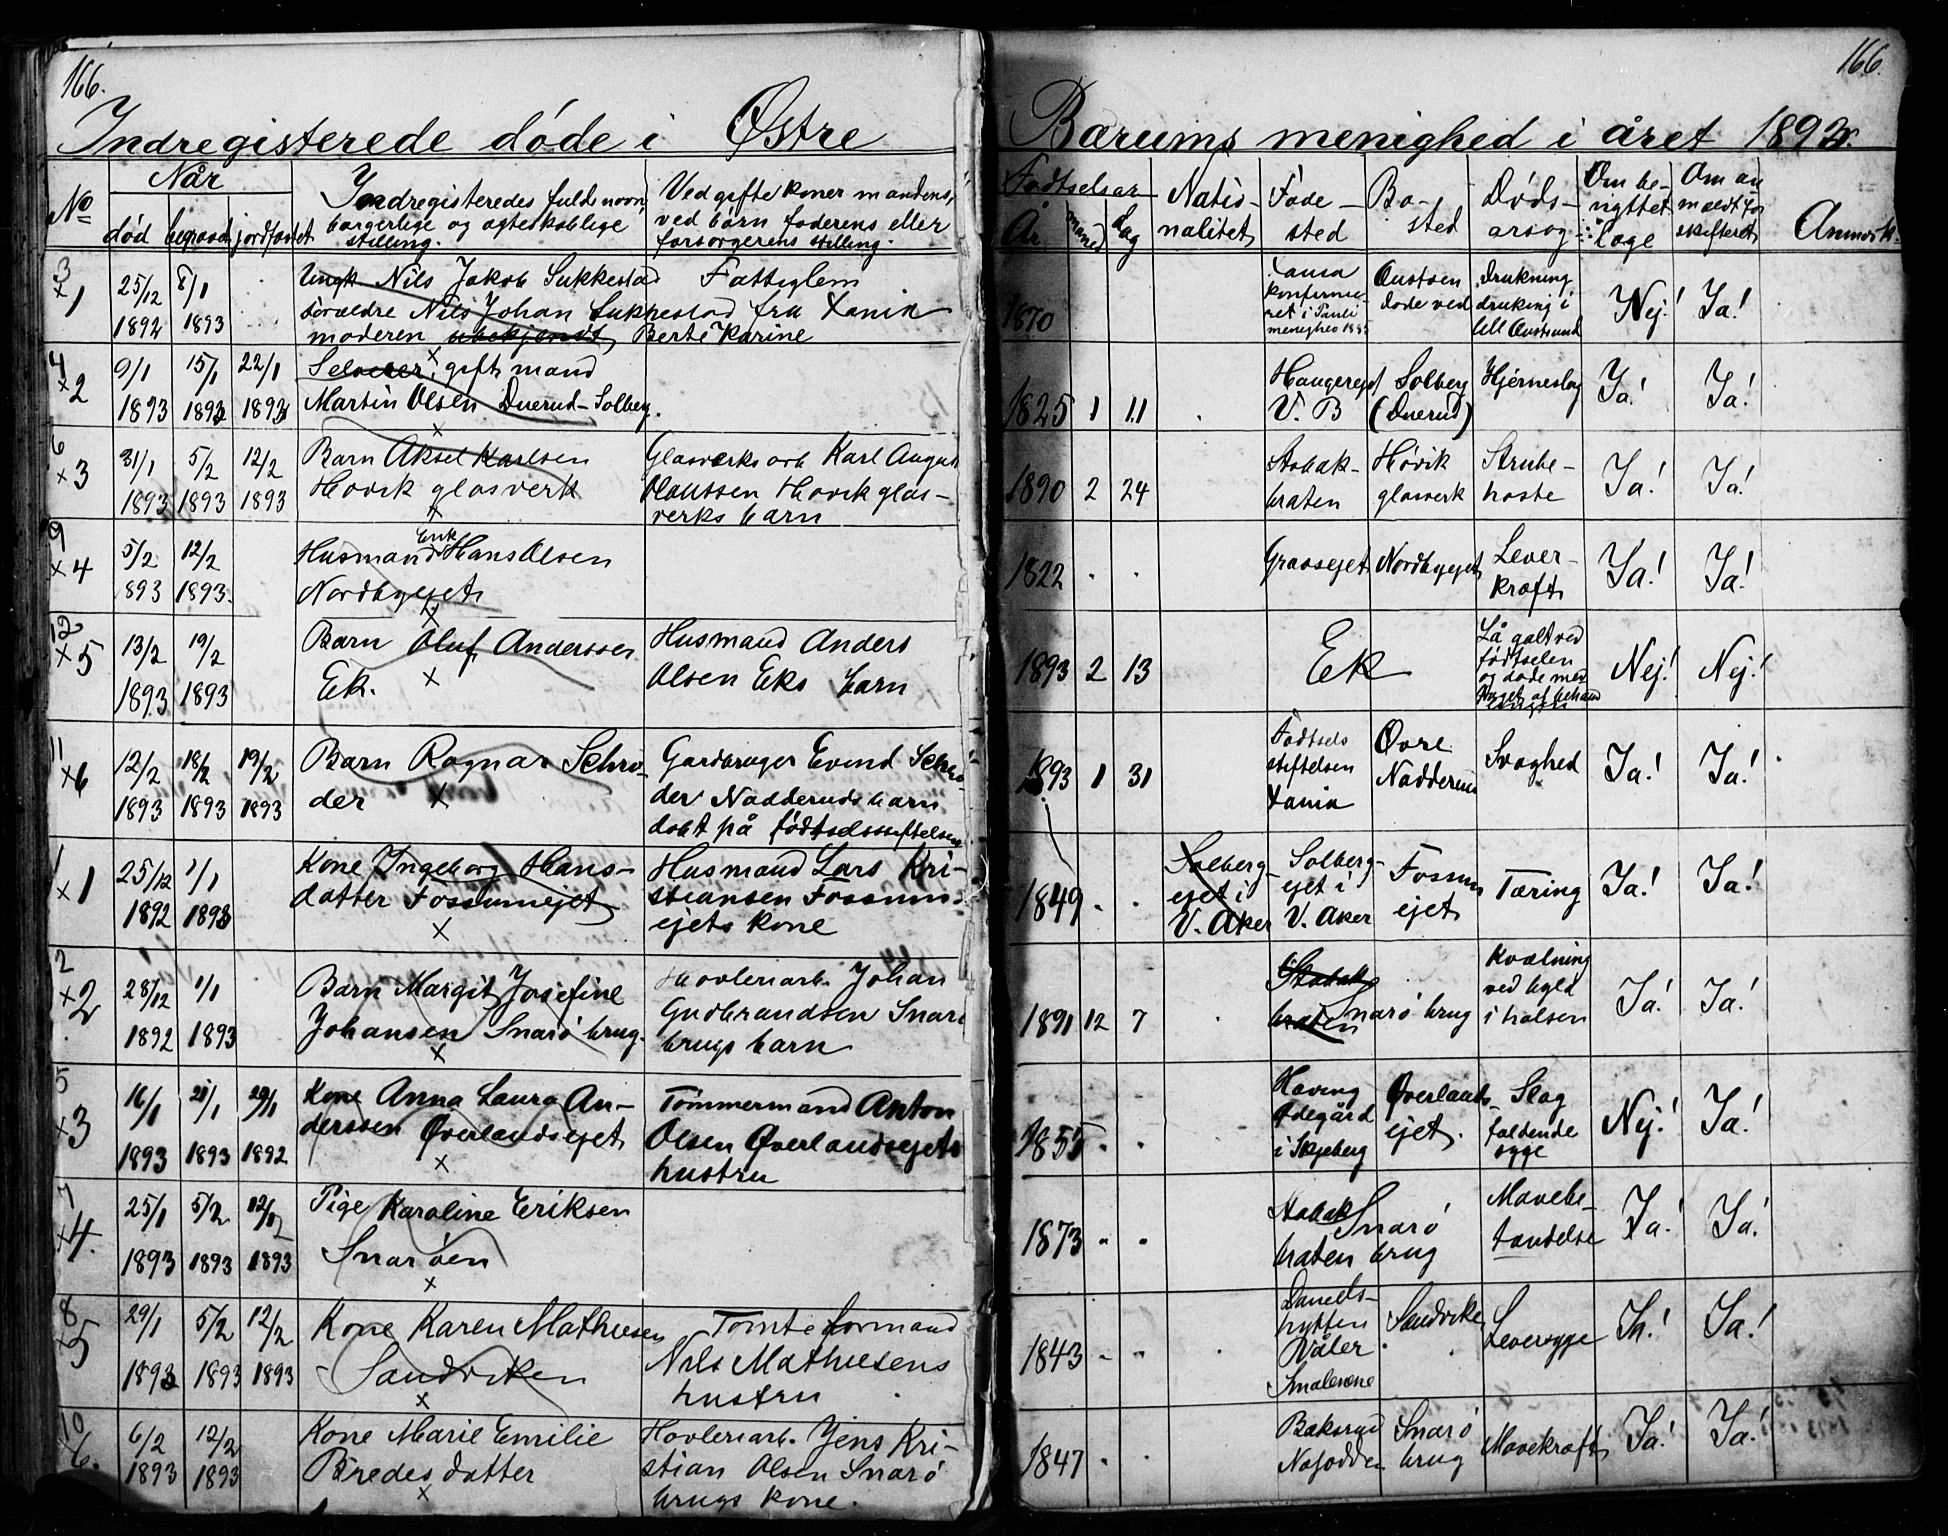 166.
166.
Indregisterede døde i Østre
Bærums menighed i året 1893.
No
Når
død
begravet
jordfæstet
Indregistreredes fulde navn,
borgerlige og ægteskablige
stilling.
Ved gifte koner mandens,
ved børn faderens eller
forsørgerens stilling.
Fødtselsår
År
måned
dag
Natio-
nalitet
Føde-
sted
Bo-
sted
Døds-
årsag
Om be-
nyttet
læge
Om an
mældt for
skifteret
Anmærk.
3
×1
25/12 8/1
1892 1893
Ungk Nils Jakob Sukkestad Fattiglem
forældre Nils Johan Sukkestad fra Xania
moderen ubekjendt, Berte Karine
1870
Xania
konfirme-
ret i Pauli
menighed
døde ved
Drukning
druknig i
Nej! Ja!
4
×2
9/1 15/1 22/1
1893 1893 1893
Selveier, gift mand
Martin Olsen Duerud-Solberg.
1825 1 11
V. B
Solberg
(Duerud)
Hjerneslag
Ja! Ja!
6
×3
31/1 5/2 12/2
1893 1893 1893
Barn Aksel Karlsen
Høvik glasverk
Glasværksarb Karl August
Olaussen Høvik glas-
verks barn
1890 2 24
Stabæk-
bråten
Høvik
glasverk
Strube-
hoste
Ja! Ja!
9
×4
5/2 12/2
893 1893.
Erik
Husmand Hans Olsen
Nordbyejet
1822
Nordbyejet
Lever-
kræft
Ja! Ja!
12
×5
13/2 19/2
1893 1893
Barn Oluf Anderssen
Ek.
Husmand Anders
Olsen Eks barn
1893 2 13
Ek
Lå galt ved
fødtselen
og døde med
Nej! Nej!
11
×6
12/2 18/2 19/2
1893 1893 1893
Barn Ragnar Schrø-
der
Gardbruger Evind Schrø
der Nadderuds barn
døbt på fødtselsstiftelsen
1893 1 31
Fødtsels
stiftelsen
Xania
Øvre
Nadderud
Svaghed
Ja! Ja!
1
×1
25/12 1/1
1892 1893
Kone Ingeborg Hans-
datter Fossumejet
Husmand Lars Kri-
stiansen Fossum-
ejets kone
1849
Solberg-
ejet i
V. Aker
Solberg-
ejet i
V. Aker
Fossum
ejet
Tæring
Ja! Ja!
2
×2
28/12 1/1
1892 1893
Barn Margit Josefine
Johansen Snarø brug.
Høvleriarb. Johan
Gudbrandsen Snarø
brugs barn
1891 12 7
Stabæk
bråten
Snarø brug
Kvælning
ved byld
i halsen
Ja! Ja!
5
×3
16/1 21/1 29/1
1893 1893 1892
Kone Anna Laura An-
derssen Øverlandsejet
Tømmermand Anton
Olsen Øverlandsejets
hustru
1855
Ødegård
i Skjeberg
Øverlands-
ejet.
Slag
faldende
syge
Nej! Ja!
7
×4.
25/1 5/2 12/2
1893 1893 1893
Pige Karoline Eriksen
Snarøen
1873
Stabæk
bråten
Snarø
brug
Mavebe-
tændelse
Ja! Ja!
8
×5
29/1 5/2 12/2
1893 1893 1893
Kone Karen Mathiesen
Sandviken
Tomteformand
Nils Mathiesens
hustru
1843
Daniels-
hytten
Våler
Smålenene
Sandviken
Leversyge
Ja! Ja!
10
×6.
6/2 12/2
1893 1893
Kone Marie Emilie
Bredesdatter
Høvleriarb. Jens Kri-
stian Olsen Snarø
brugs kone.
1847
Nesodden
Snarø
brug
Mavekræft
Ja! Ja!